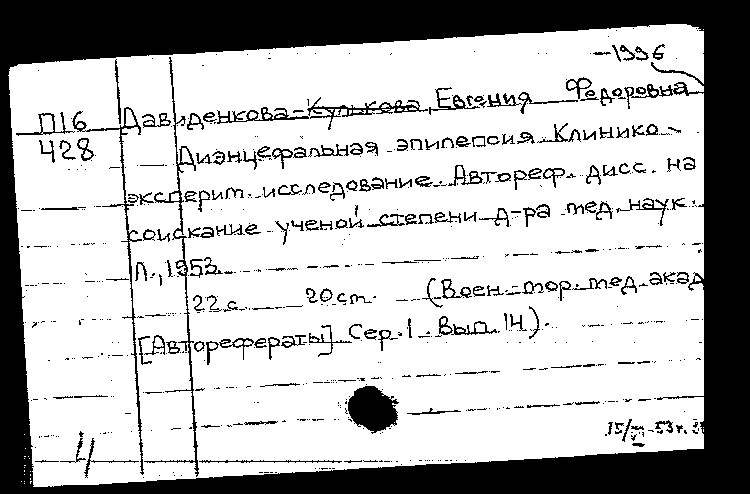 –1996
П16 Давиденкова-Кулькова, Евгения Федоровна
428 Диэнцефальная эпилепсия. Клинико-
эксперим. исследование. Автореф. дисс. на
соискание ученой степени д-ра мед. наук.
Л., 1953.
22 с. 20 см. (Воен.-мор. мед. акад
[Авторефераты] Сер. 1. Вып. 14).
15/VII-53 г.